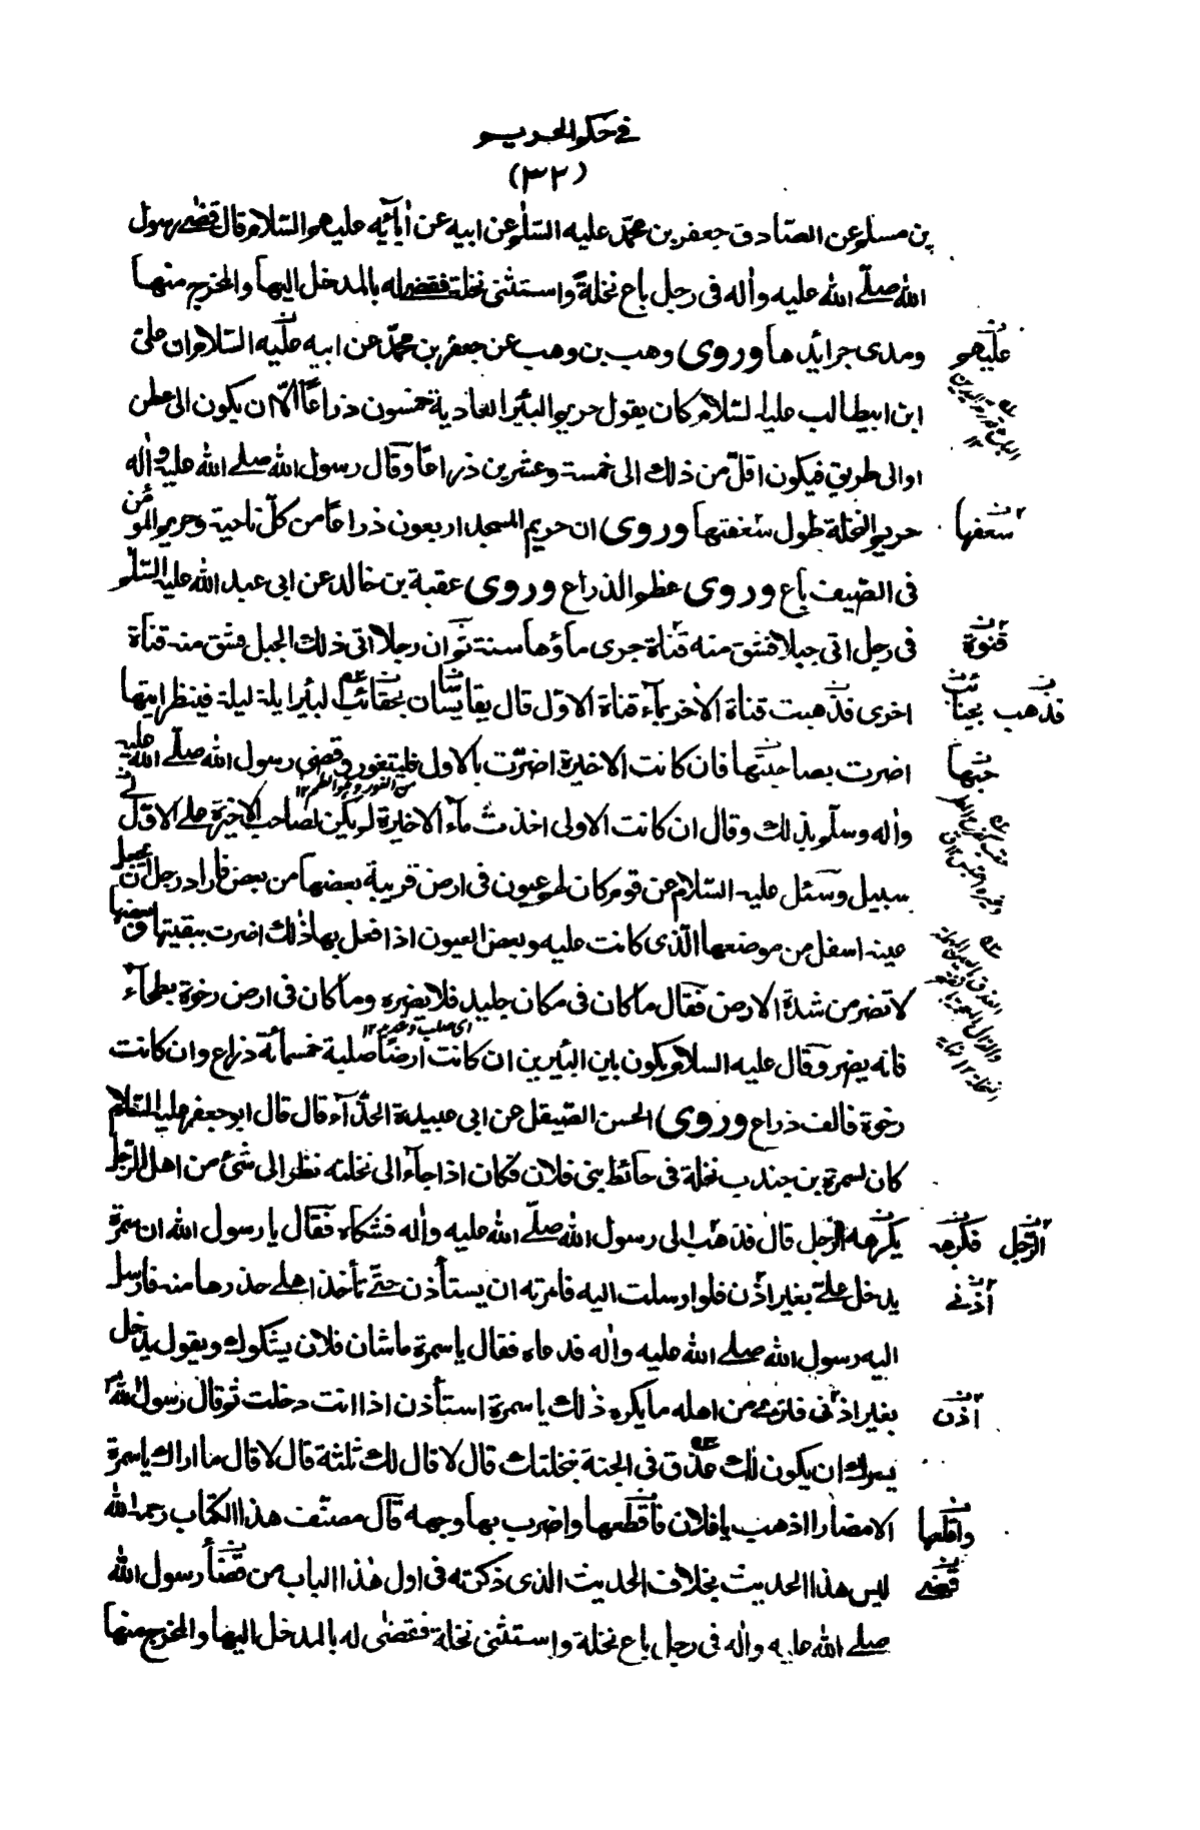 في حكم الحريم
(٣٢)
بن مسلم عن الصّادق جعفر بن محمّد عليه السّلم عن ابيه عن اٰبائه عليهم السّلام قال قضٰى رسول
الله صلّے الله عليه واٰله فى رجل باع نخلةً واستثنى نخلة فقضے له بالمدخل اليها والمخرج منها
ومدى جرائدها وروى وهب بن وهب عن جعفر بن محمّد عن ابيه عليه السّلام ان علىّ
عليهم
ابن ابيطالب عليه لسّلام كان يقول حريم البئر العادية خمسون ذراعًا الّا ان يكون الى عطن
اوالى طريق فيكون اقلّ من ذلك الى خمسة وعشرين ذراعًا وقال رسول الله صلے الله عليه واٰله
حريم النخلة طول سَعفتها وروى ان حريم المسجد اربعون ذراعًا من كلّ ناحية وحريم المؤمن
سعفها
فى الصّيف باع وروى عظم الذراع وروى عقبة بن خالد عن ابى عبد الله عليه السّلم
فى رجل اتى جبلا فشق منه قناة جرى ماؤها سنة ثم ان رجلا اتى ذلك الجبل فشق منه قناة
قنوة
اخرى فذهبت قناة الاخر بماء قناة الاوّل قال يقايسان بحقائب لبئر ليلة ليلة فينظر ايتها
فذهب
اضرت بصاحبتها فان كانت الاخيرة اضرّت بالاول فليتغور وقضى رسول الله صلّے الله عليه
جنبها
من الغور وهو الطم ١٢
واٰله وسلّم بذلك وقال ان كانت الاولى اخذت ماء الاخيرة لم يكن لصاحب الاخيرة على الاوّل
سبيل وسئل عليه السّلام عن قوم كان لهم عيون فى ارض قريبة بعضها من بعض فاراد رجل ان يجعل
عينه اسفل من موضعها الّذى كانت عليه وبعض العيون اذا فعل بها ذٰلك اضرت ببقيتها وبعضها
لا تضر من شدة الارض فقال ما كان فى مكان جليد فلا يضره وما كان فى ارض رخوة بطحاء
فانه يضر وقال عليه السلام يكون بين البئرين ان كانت ارضًا صلبة خمسمائة ذراع وان كانت
رخوة فالف ذراع وروى الحسن الصّيقل عن ابى عبيدة الحذّاء قال قال ابو جعفر عليه السّلام
كان لسمرة بن جندب نخلة فى حائط بنى فلان فكان اذا جاء الى نخلته نظر الى شئ من اهل الرّجل
يكرهه الرّجل قال فذهب الى رسول الله صلّے الله عليه واٰله فشكاه فقال يا رسول الله ان سمرة
الرّجل فكرهه
يدخل علىّ بغير اذن فلو ارسلت اليه فامرته ان يستأذن حتّے تأخذ اهلے حذرها منه فارسل
اذنے
اليه رسول الله صلے الله عليه واٰله فدعاه فقال يا سمرة ما شان فلان يشكوك ويقول يدخل
بغير اذنى فترى من اهله ما يكره ذٰلك يا سمرة استأذن اذا انت دخلت ثم قال رسول الله
اذن
يسرك ان يكون لك عذق فى الجنة بنخلتك قال لا قال لك ثلثة قال لا قال ما اراك يا سمرة
الا مضارا اذهب يا فلان فاقطعها واضرب بها وجهه قال مصنّف هذا الكتاب رحمه الله
واقلعها
ليس هذا الحديث بخلاف الحديث الذى ذكرته فى اول هٰذا الباب من قضاء رسول الله
قضے
صلے الله عليه واٰله فى رجل باع نخلة واستثنى نخلة فقضٰى له بالمدخل اليها والمخرج منها